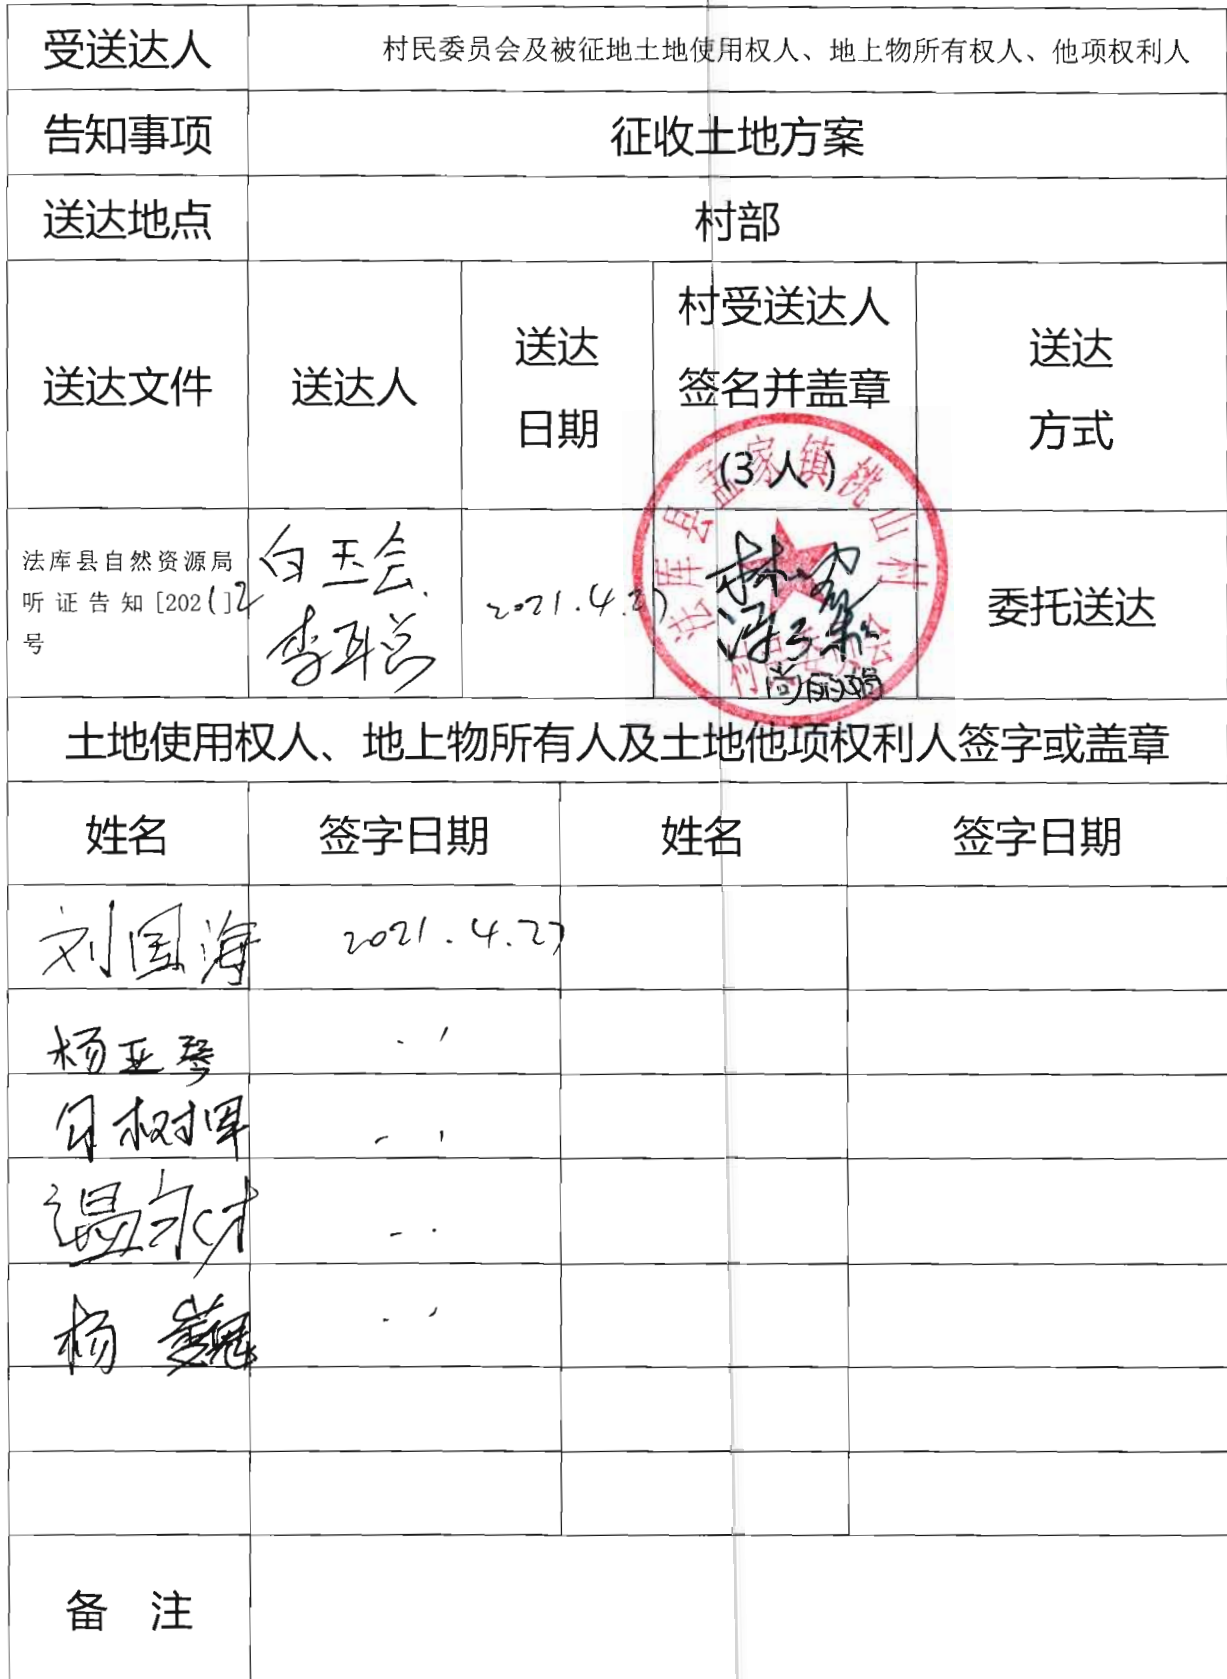 受送达人
村民委员会及被征地土地使用权人、地上物所有权人、他项权利人
告知事项
征收土地方案
送达地点
村部
送达文件
送达人
送达
日期
村受送达人
签名并盖章
(3人)
送达
方式
法库县自然资源局
听证告知[2021]2
号
白玉会
2021.4.27
尚丽娟
委托送达
法库县孟家镇桃山村
村民委员会
土地使用权人、地上物所有人及土地他项权利人签字或盖章
姓名
签字日期
姓名
签字日期
刘国海
2021.4.27
杨亚琴
温永才
杨
备 注